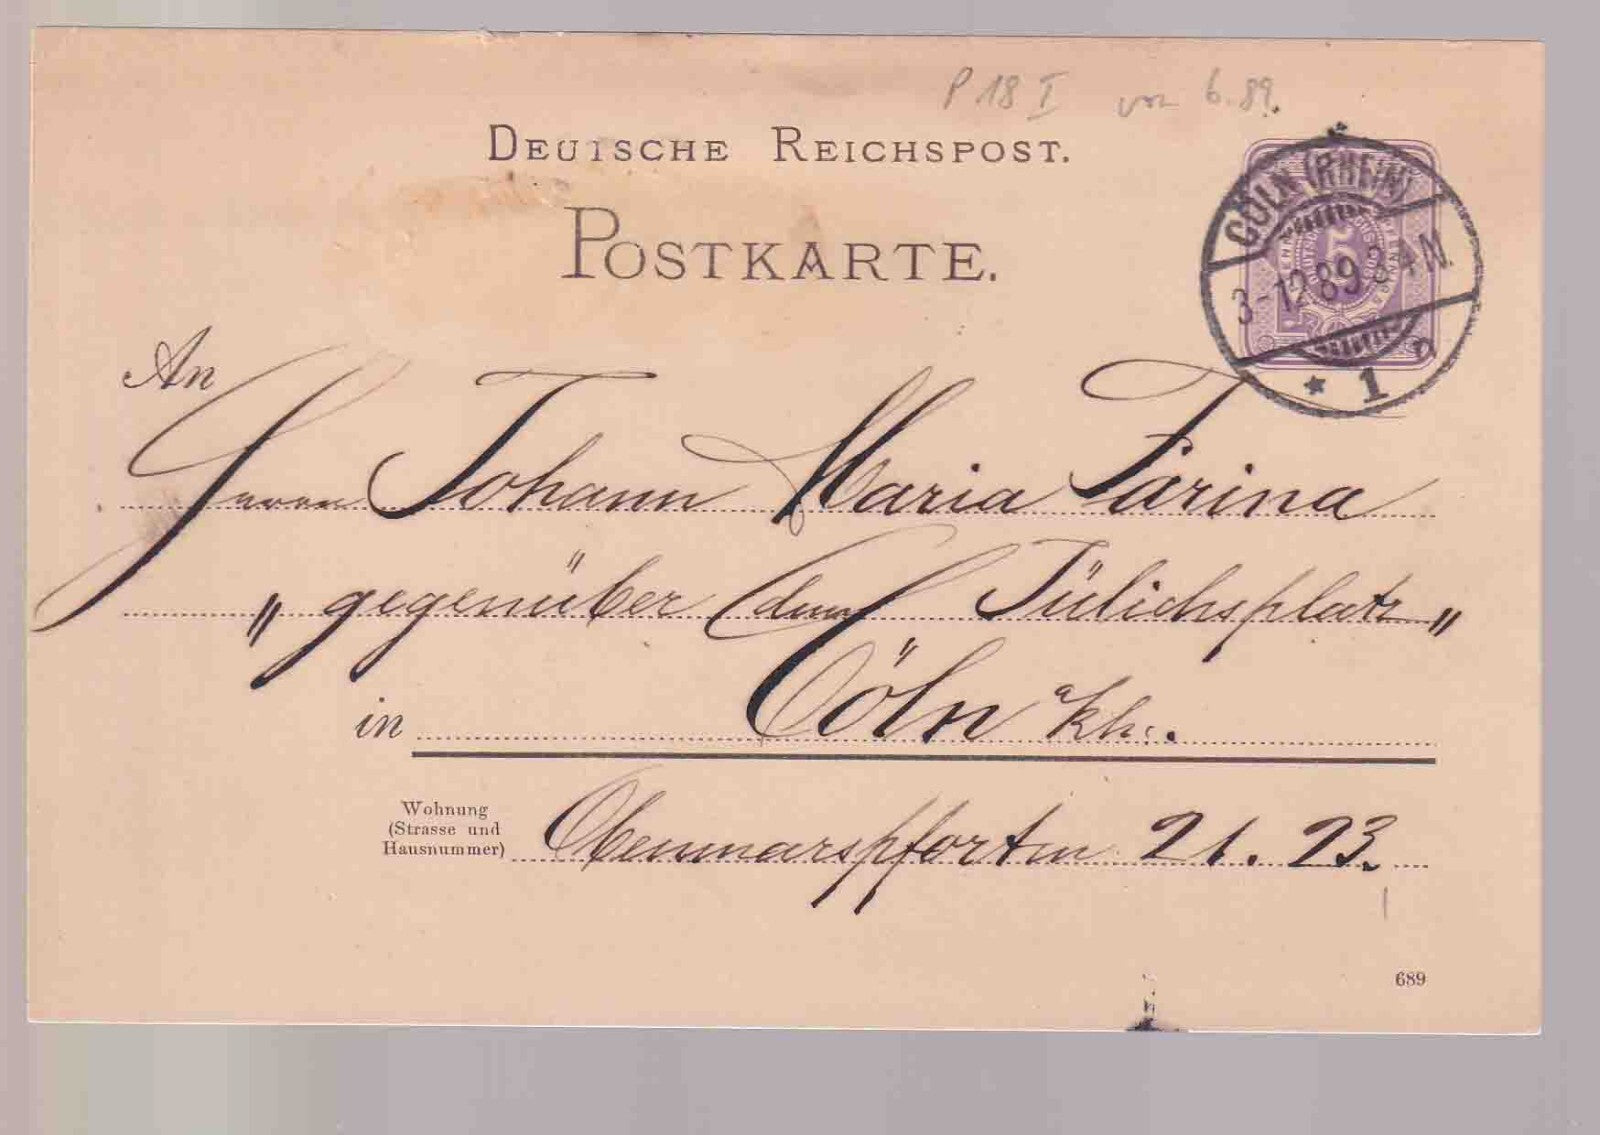 P 18 I von 6.89.
DEUTSCHE REICHSPOST.
POSTKARTE.
CÖLN (RHEIN)
3-12 89 3-4 N.
* 1 n
An
Herrn Johann Maria Farina
„gegenüber dem Jülichsplatz"
in Cöln a/Rh.
Wohnung
(Strasse und
Hausnummer)
Obenmarspforten 21. 23.
689